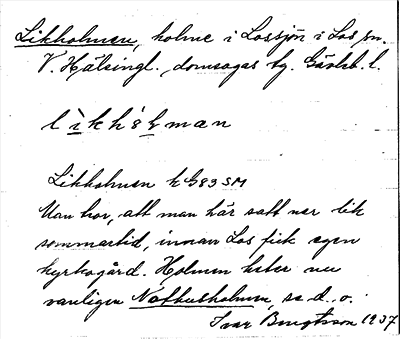 Likholmen, holme i Lossjön i Los sn.
V. Hälsingl. domsagas tg. Gävleb. l.
l ì k h ò l m a n
Likholmen k G 83 SM
Man tror, att man här satt ner lik
sommartid, innan Los fick egen
kyrkogård. Holmen heter nu
vanligen Nothusholmen, se d. o.
Ivar Bengtsson 1937